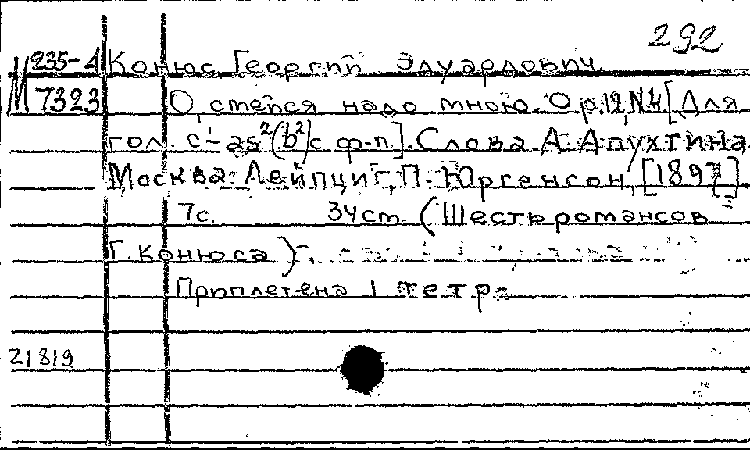 292
М 235-4 Конюс Георгий Эдуардович
7323 О, смейся надо мною. Op.12, N4 [Для
гол. c¹-as²(b²) с ф-п]. Слова А. Апухтина
Москва-Лейпциг, П. Юргенсон, [1897]
7с. 34см. (Шесть романсов
Г. Конюса)
Приплетена 1 тетр.
21819